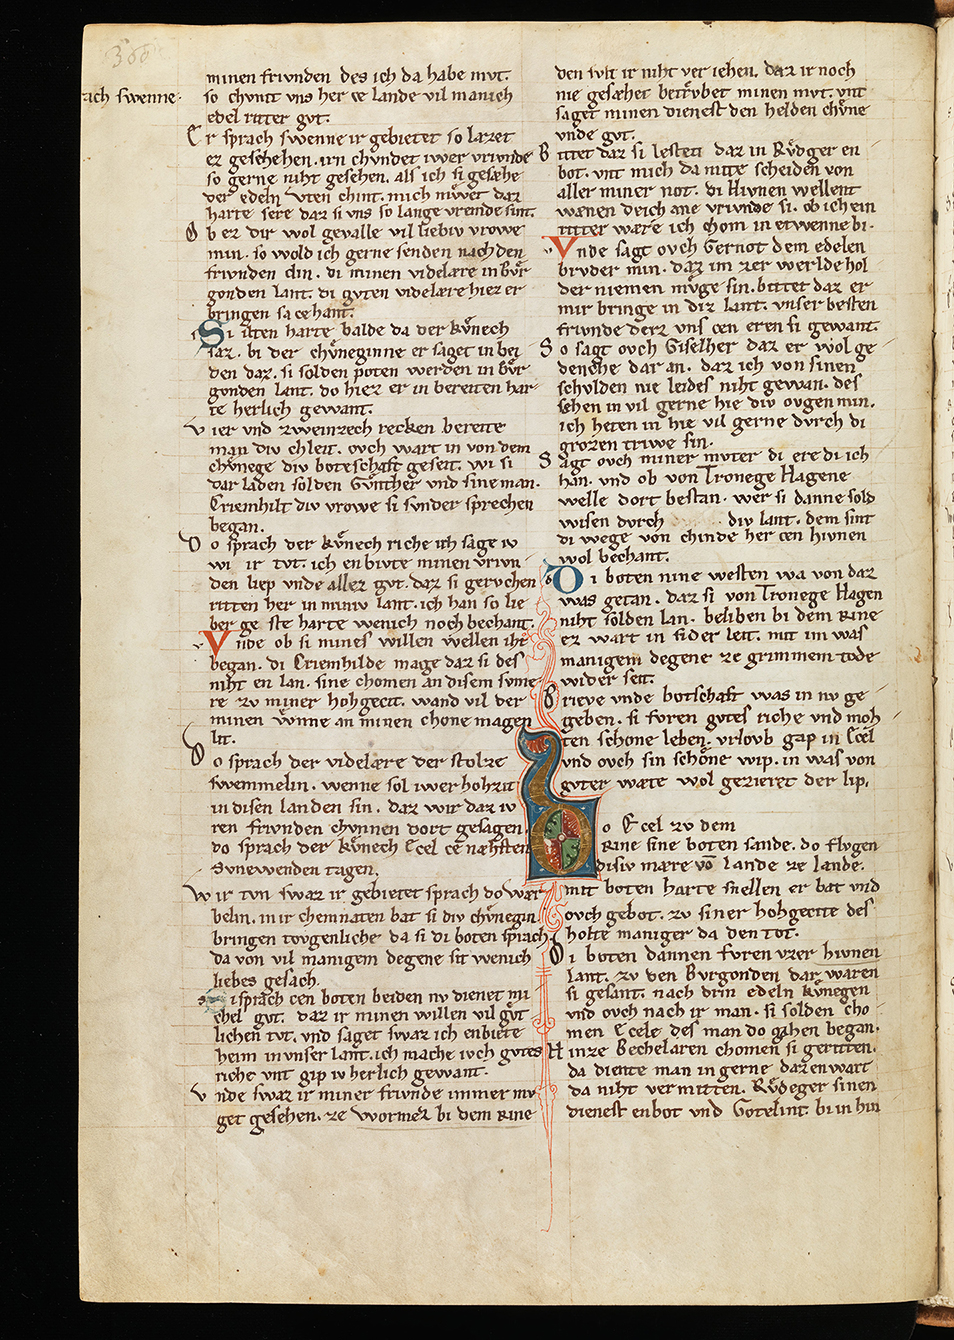 366
rach swenne.
minen frivnden des ich da habe mvt.
so chvmt vns her ce lande vil manich
edel ritter gvt.
Er sprach swenne ir gebietet so lazet
ez geschehen. irn chvndet iwer vrivnde
so gerne niht gesehen. als ich si gesæhe
der edeln Vten chint. mich mvͤet daz
harte sere daz si vns so lange vremde sint.
Ob ez dir wol gevalle vil liebiv vrowe
min. so wold ich gerne senden nach den
frivnden din. di minen videlære in bvͦr
gonden lant. di gvten videlære hiez er
bringen sa ce hant.
Si ilten harte balde da der kvͤnech
saz. bi der chvͤneginne er saget in bei
den daz. si solden poten werden in bvͦr
gonden lant. do hiez er in bereiten har
te herlich gewant.
vier vnd zweinzech recken bereite
man div chleit. ovch wart in von dem
chvͤnege div boteschaft geseit. wi si
dar laden solden Gvnther vnd sine man.
Criemhilt div vrowe si svnder sprechen
began.
Do sprach der kvͤnech riche ich sage iv
wi ir tvt. ich enbivte minen vrivn
den liep vnde allez gvt. daz si gervchen
ritten her in miniv lant. ich han so lie
ber geste harte wenich noch bechant.
Vnde ob si mines willen wellen iht
began. di Criemhilde mage daz si des
niht en lan. sine chomen an disem sume
re zv miner hohgecit. wand vil der
minen wnne an minen chone magen
lit.
Do sprach der videlære der stolze
swemmelin. wenne sol iwer hohzit
in disen landen sin. daz wir daz iv
ren frivnden chvnnen dort gesagen.
do sprach der kvͤnech Ecel ce næhsten
svnewenden tagen.
wir tvn swaz ir gebietet sprach do wær
belin. in ir chemnaten bat si div chvͤnegin.
bringen tovgenliche da si di boten sprach
da von vil manigem degene sit wenich
liebes gesach.
Si sprach cen boten beiden nv dienet mi
chel gvt. daz ir minen willen vil gvͤt
lichen tvt. vnd saget swaz ich enbiete
heim in vnser lant. ich mache ivch gvtes
riche vnt gip iv herlich gewant.
vnde swaz ir miner frivnde immer mv
get gesehen. ze wormez bi dem Rine
den svlt ir niht veriehen. daz ir noch
nie gesæhet betrvͤbet minen mvt. vnt
saget minen dienest den helden chvͤne
vnde gvt.
Bittet daz si lesten daz in Rvͤdger en
bot. vnt mich da mite scheiden von
aller miner not. di Hivnen wellent
wænen deich ane vrivnde si. ob ich ein
ritter wære ich chom in etwenne bi.
Vnde sagt ovch Gernot dem edelen
brvder min. daz im zer werlde hol
der niemen mvͤge sin. bittet daz er
mir bringe in diz lant. vnser besten
frivnde derz vns cen eren si gewant.
So sagt ovch Giselher daz er wol ge
denche dar an. daz ich von sinen
schvlden nie leides niht gewan. des
sehen in vil gerne hie div ovgen min.
ich heten in hie vil gerne dvrch di
grozen triwe sin.
Sagt ovch miner mvter di ere di ich
han. vnd ob von Tronege Hagene
welle dort bestan. wer si danne sold
wisen dvrch div lant. dem sint
di wege von chinde her cen hivnen
wol bechant.
Di boten nine westen wa von daz
was getan. daz si von Tronege Hagen
niht solden lan. beliben bi dem Rine
ez wart in sider leit. mit im was
manigem degene ze grimmem tode
wider seit.
Brieve vnde botschaft was in nv ge
geben. si fvren gvtes riche vnd moh
ten schone leben. vrlovb gap in Ecel
vnd ovch sin schoͤne wip. in was von
gvter wæte wol gezieret der lip.
Do Ecel zv dem
Rine sine boten sande. do flvgen
disiv mære vō lande ze lande.
mit boten harte snellen er bat vnd
ovch gebot. zv siner hohgecite des
holte maniger da den tot.
Di boten dannen fvren vzer hivnen
lant. zv den Bvrgonden dar waren
si gesant. nach drin edeln kvͤnegen
vnd ovch nach ir man. si solden cho
men Ecele des man do gahen began.
Hinze Bechelaren chomen si geritten.
da diente man in gerne daz enwart
da niht vermitten. Rvͤdeger sinen
dienest enbot vnd Gotelint. bi in hin